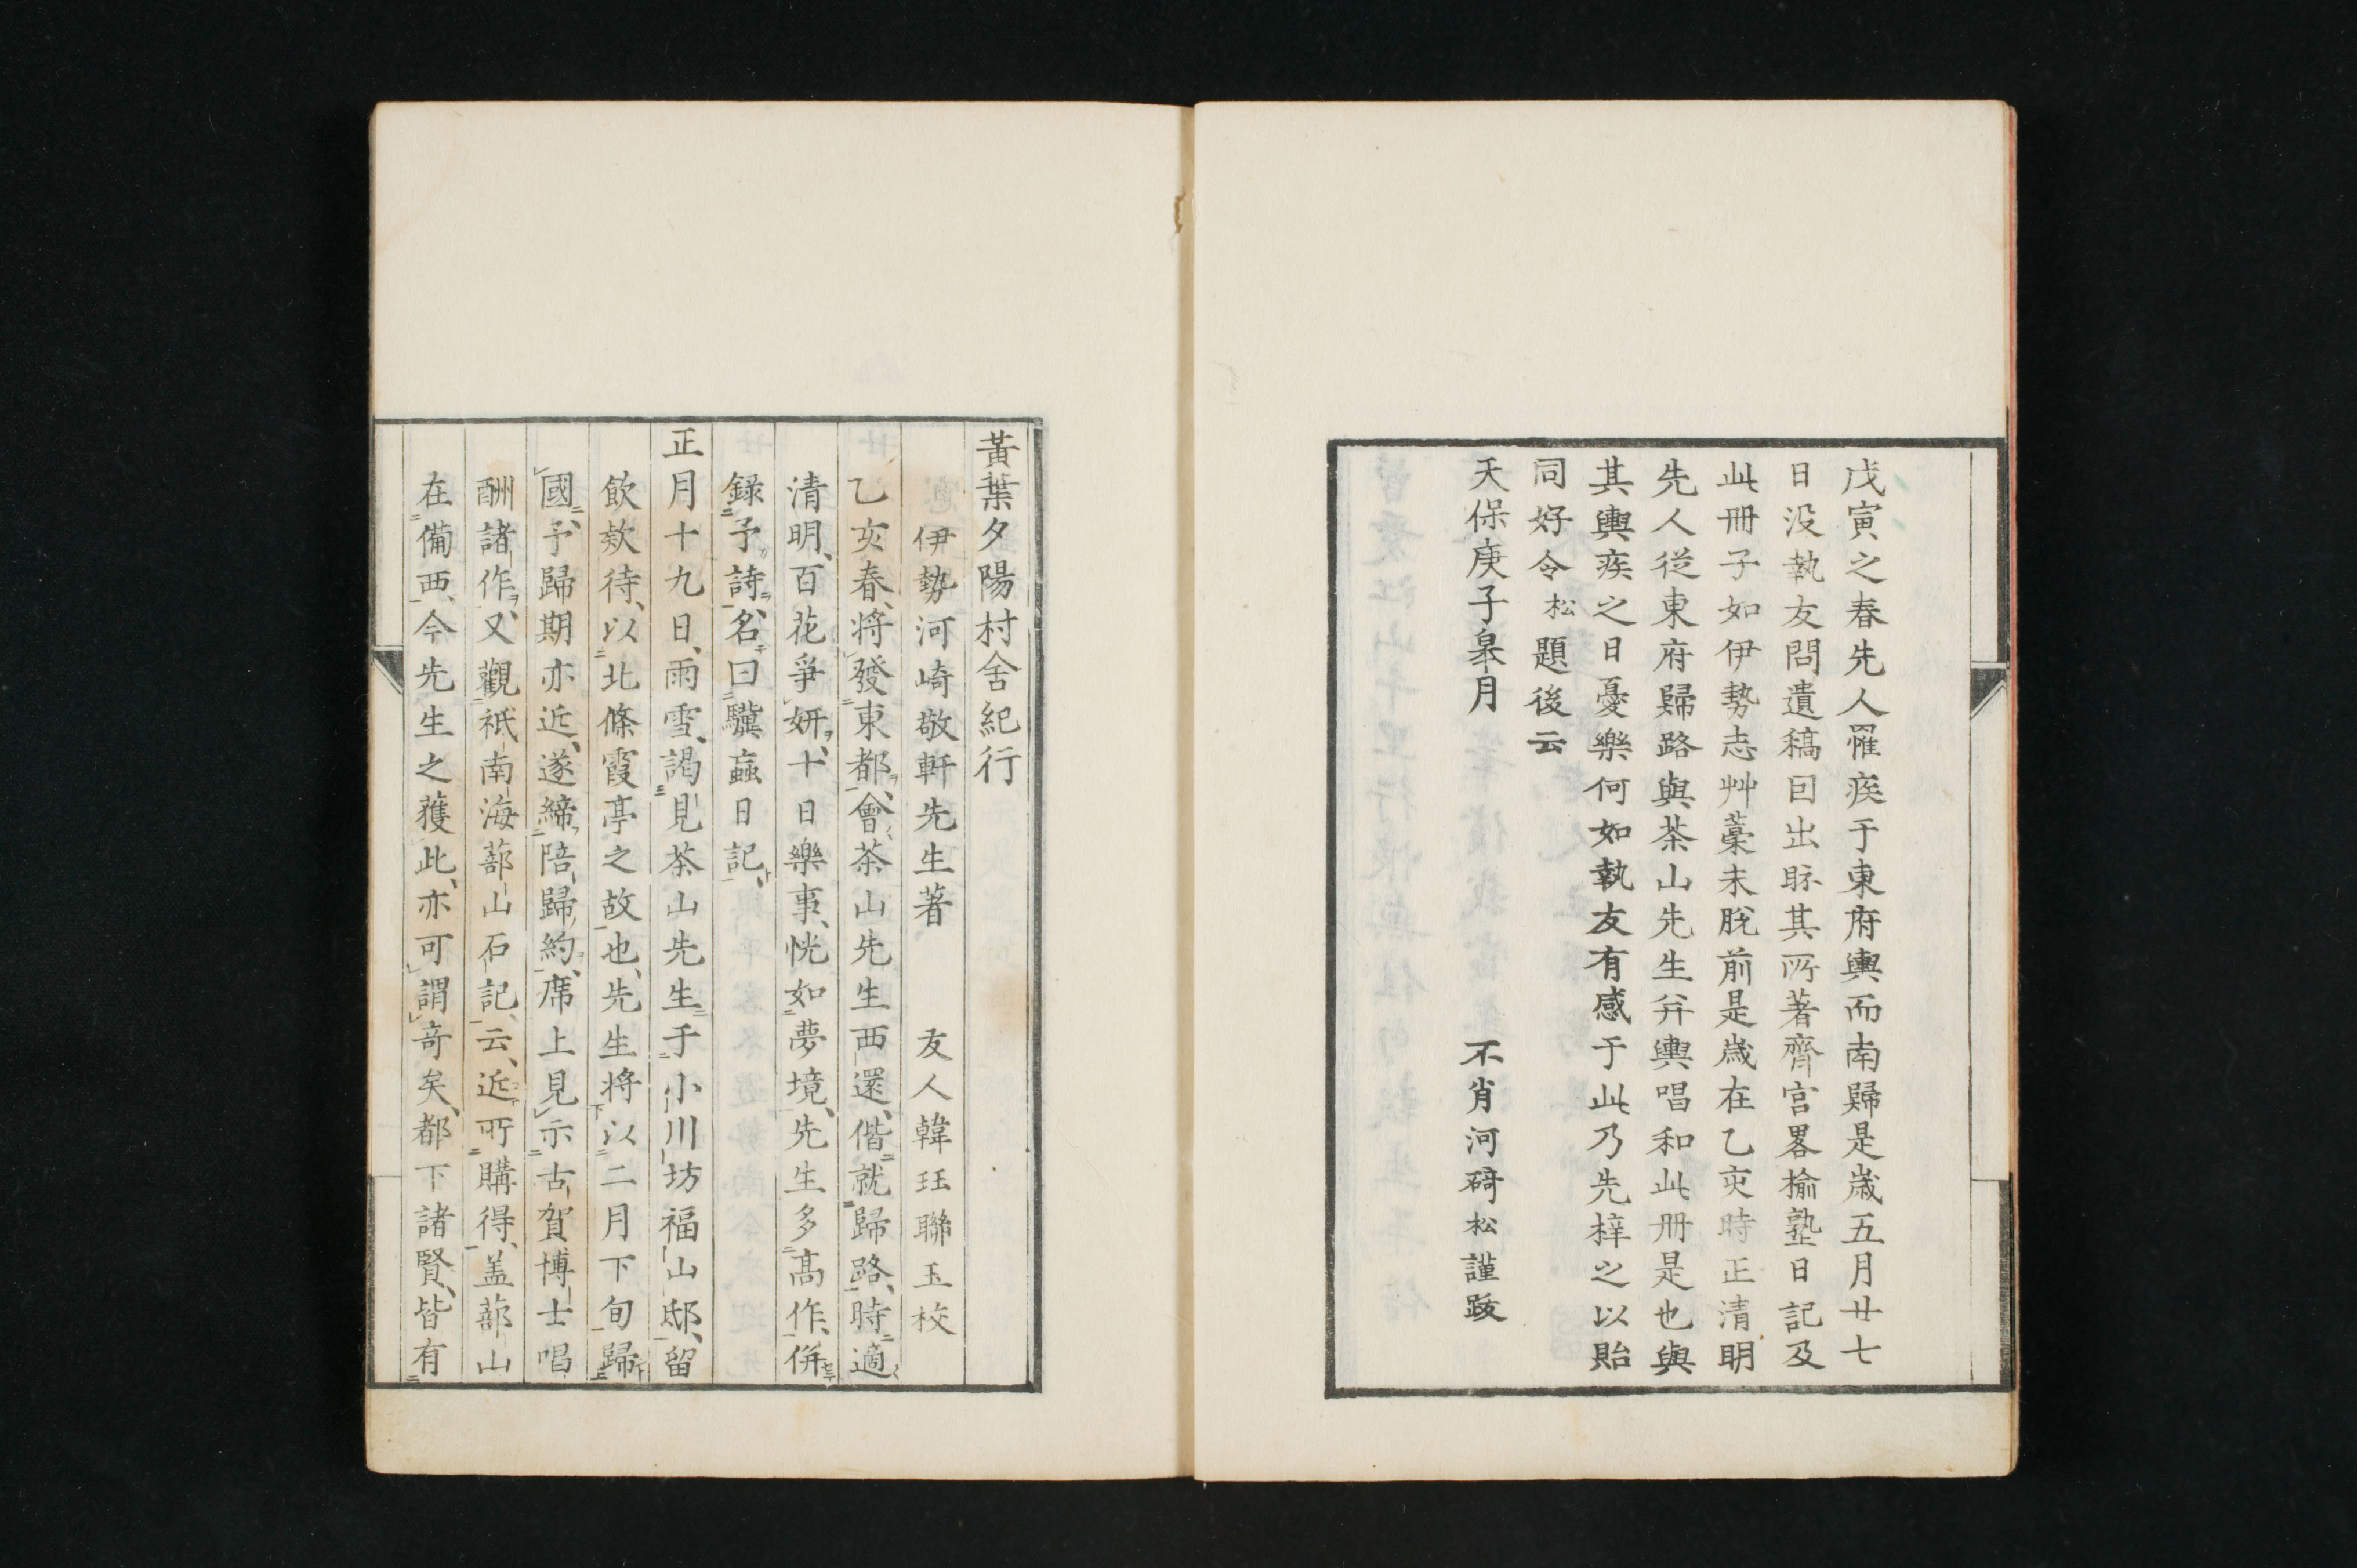 戊寅之春先人罹疾于東府輿而南歸是歲五月廿七
日没執友問遺稿囙出眎其所著齊宮畧揄塾日記及
此冊子如伊勢志艸藁未脫前是歲在乙亥時正清明
先人從東府歸路與茶山先生幷輿唱和此冊是也與
其輿疾之日憂樂何如執友有感于此乃先梓之以貽
同好令松題後云
天保庚子皐月
不肖河﨑松謹跋
黃葉夕陽村舍紀行
伊勢河崎敬軒先生著 友人韓珏聯玉校
乙亥春、將發東都、會茶山先生西還、偕就歸路、時適
清明、百花爭妍、十日樂事、恍如夢境、先生多高作、併
録予詩、名曰驥蝱日記、
正月十九日、雨雪、謁見茶山先生于小川坊福山邸、留
飲欵待、以北條霞亭之故也、先生將以二月下旬歸
國、予歸期亦近、遂締陪歸約、席上見示古賀博士唱
酬諸作、又觀祇南海蔀山石記、云、近所購得、盖蔀山
在備西、今先生之獲此、亦可謂奇矣、都下諸賢、皆有